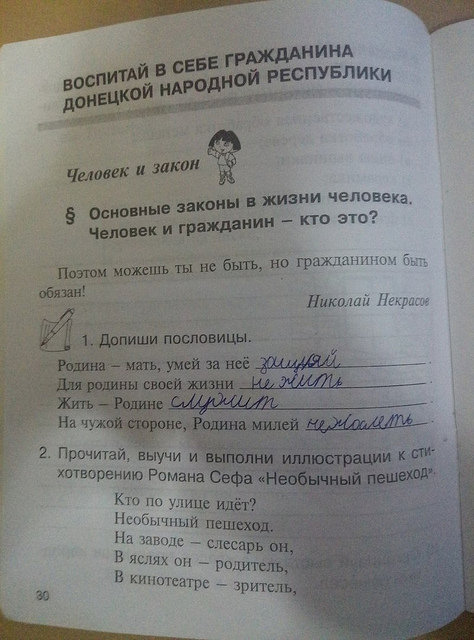 ВОСПИТАЙ В СЕБЕ ГРАЖДАНИНА
ДОНЕЦКОЙ НАРОДНОЙ РЕСПУБЛИКИ
Человек и закон
§ Основные законы в жизни человека.
Человек и гражданин – кто это?
Поэтом можешь ты не быть, но гражданином быть
обязан!
Николай Некрасов
1. Допиши пословицы.
Родина – мать, умей за неё
Для родины своей жизни не жить
Жить – Родине служит
На чужой стороне, Родина милей
2. Прочитай, выучи и выполни иллюстрации к сти-
хотворению Романа Сефа «Необычный пешеход».
Кто по улице идёт?
Необычный пешеход.
На заводе – слесарь он,
В яслях он – родитель,
В кинотеатре – зритель,
30